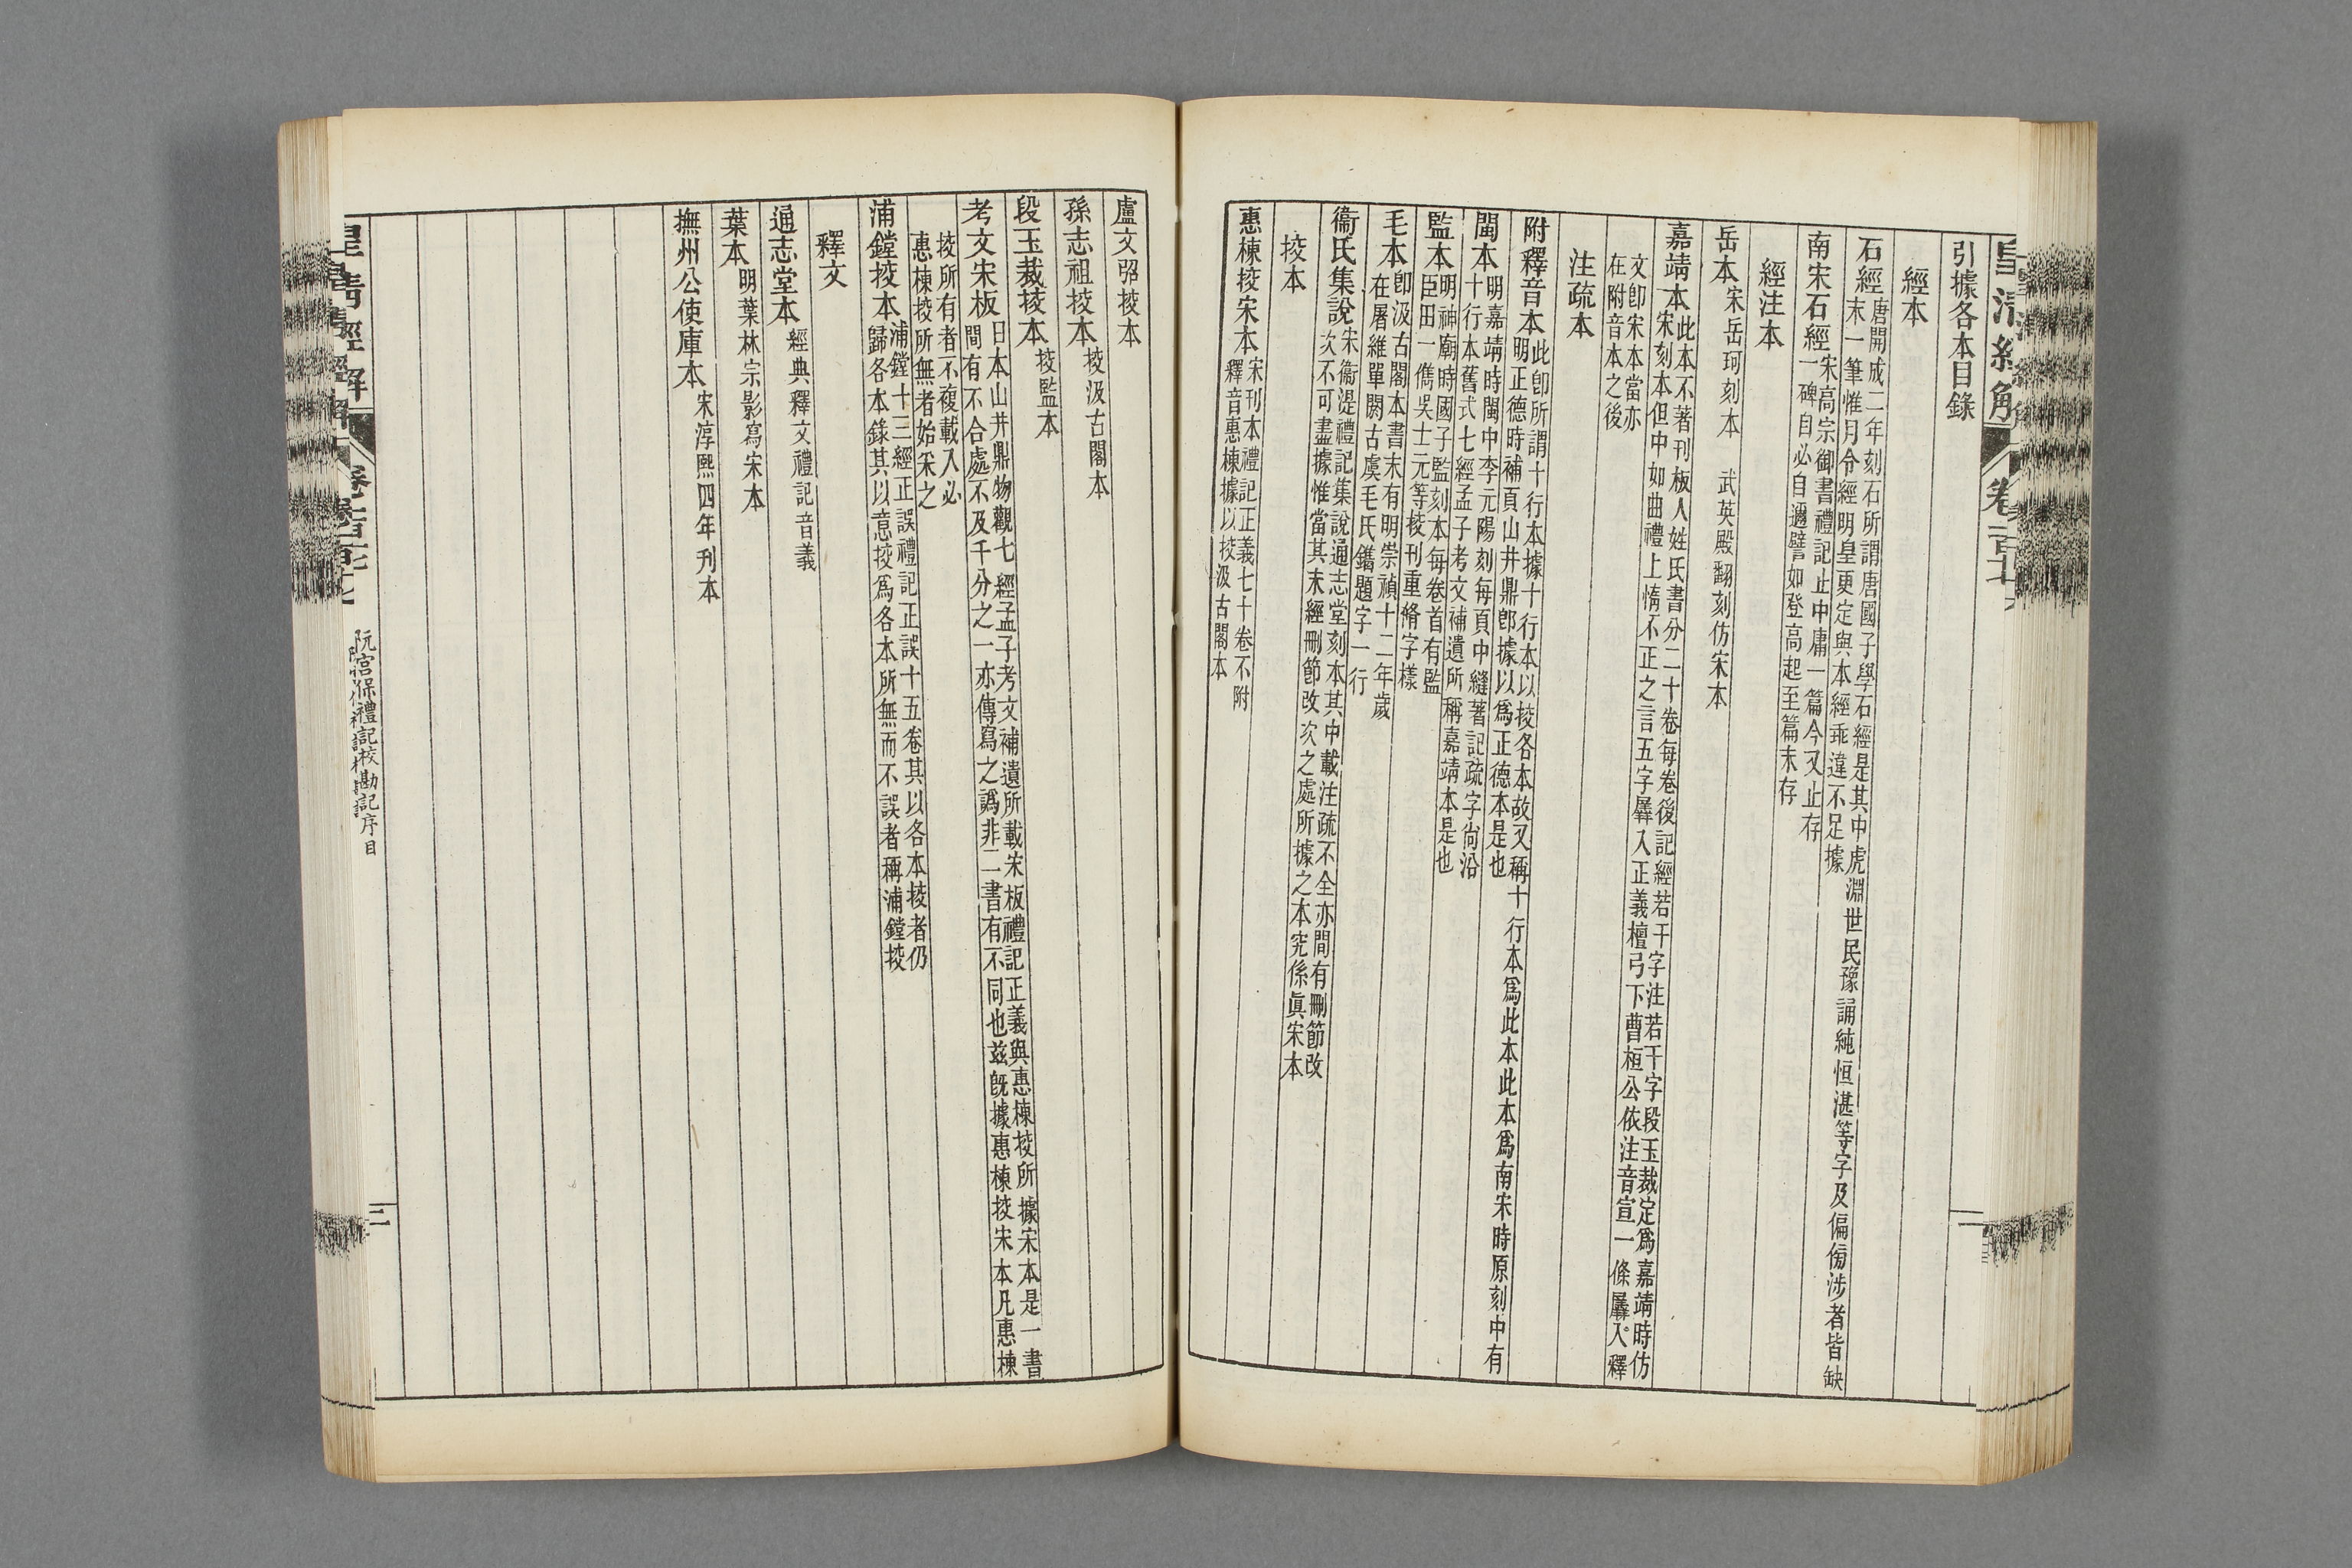 皇清經解
引據各本目錄
經本
石經唐開成二年刻石所謂唐國子學石經是其中虎淵世民豫誦純恒湛等字及偏傍涉者皆缺
末一筆惟月令經明皇更定與本經乖違不足據
南宋石經宋高宗御書禮記止中庸一篇今又止存
一碑自必自邇譬如登高起至篇末存
經注本
岳本宋岳珂刻本 武英殿翻刻仿宋本
嘉靖本此本不著刊板人姓氏書分二十卷每卷後記經若干字注若干字段玉裁定爲嘉靖時仿
宋刻本但中如曲禮上惰不正之言五字羼入正義檀弓下曹桓公依注音宣一條羼入釋
文卽宋本當亦
在附音本之後
注疏本
附釋音本此卽所謂十行本據十行本以挍各本故又稱十行本爲此本此本爲南宋時原刻中有
明正德時補頁山井鼎卽據以爲正德本是也
閩本明嘉靖時閩中李元陽刻每頁中縫著記疏字尚沿
十行本舊式七經孟子考文補遺所稱嘉靖本是也
監本明神廟時國子監刻本每卷首有監
臣田一儁吳士元等挍刊重脩字樣
毛本卽汲古閣本書末有明崇禎十二年歲
在屠維單閼古虞毛氏鐫題字一行
衞氏集說宋衞湜禮記集說通志堂刻本其中載注疏不全亦間有刪節改
次不可盡據惟當其未經刪節改次之處所據之本究係眞宋本
挍本
惠棟挍宋本宋刊本禮記正義七十卷不附
釋音惠棟據以挍汲古閣本
盧文弨挍本
孫志祖挍本挍汲古閣本
段玉裁挍本挍監本
考文宋板日本山井鼎物觀七經孟子考文補遺所載宋板禮記正義與惠棟挍所據宋本是一書
間有不合處不及千分之一亦傳寫之譌非二書有不同也茲旣據惠棟挍宋本凡惠棟
挍所有者不複載入必
惠棟挍所無者始采之
浦鏜挍本浦鏜十三經正誤禮記正誤十五卷其以各本挍者仍
歸各本錄其以意挍爲各本所無而不誤者稱浦鏜挍
釋文
通志堂本經典釋文禮記音義
葉本明葉林宗影寫宋本
撫州公使庫本宋淳熙四年刊本
皇清經解
阮宮保禮記校勘記序目
三